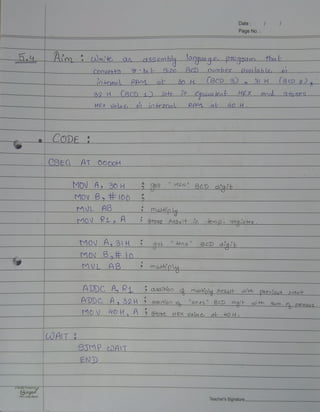 Date : / /
Page No. :
5.4 Aim : Write an assembly language program that
converts 8-bit BCD number available in
internal RAM at 30 H (BCD 3), 31 H (BCD 2),
32 H (BCD 1) into it equivalent HEX and stores
HEX value in internal RAM at 40 H
• CODE :
CSEG AT 0000H
MOV A, 30H ; get "Hun" BCD digit
MOV B, #100 ;
MUL AB ; multiply
MOV R1, A ; store result in temp. register.
MOV A, 31H ; get "tens" BCD digit
MOV B, #10
MUL AB ; multiply
ADDC A, R1 ; addition of multiply result with previous
ADDC A, 32H ; addition of "ones" BCD digit with sum of previous
MOV 40H, A ; store HEX value at 40H.
WAIT :
SJMP WAIT
END
Teacher's Signature